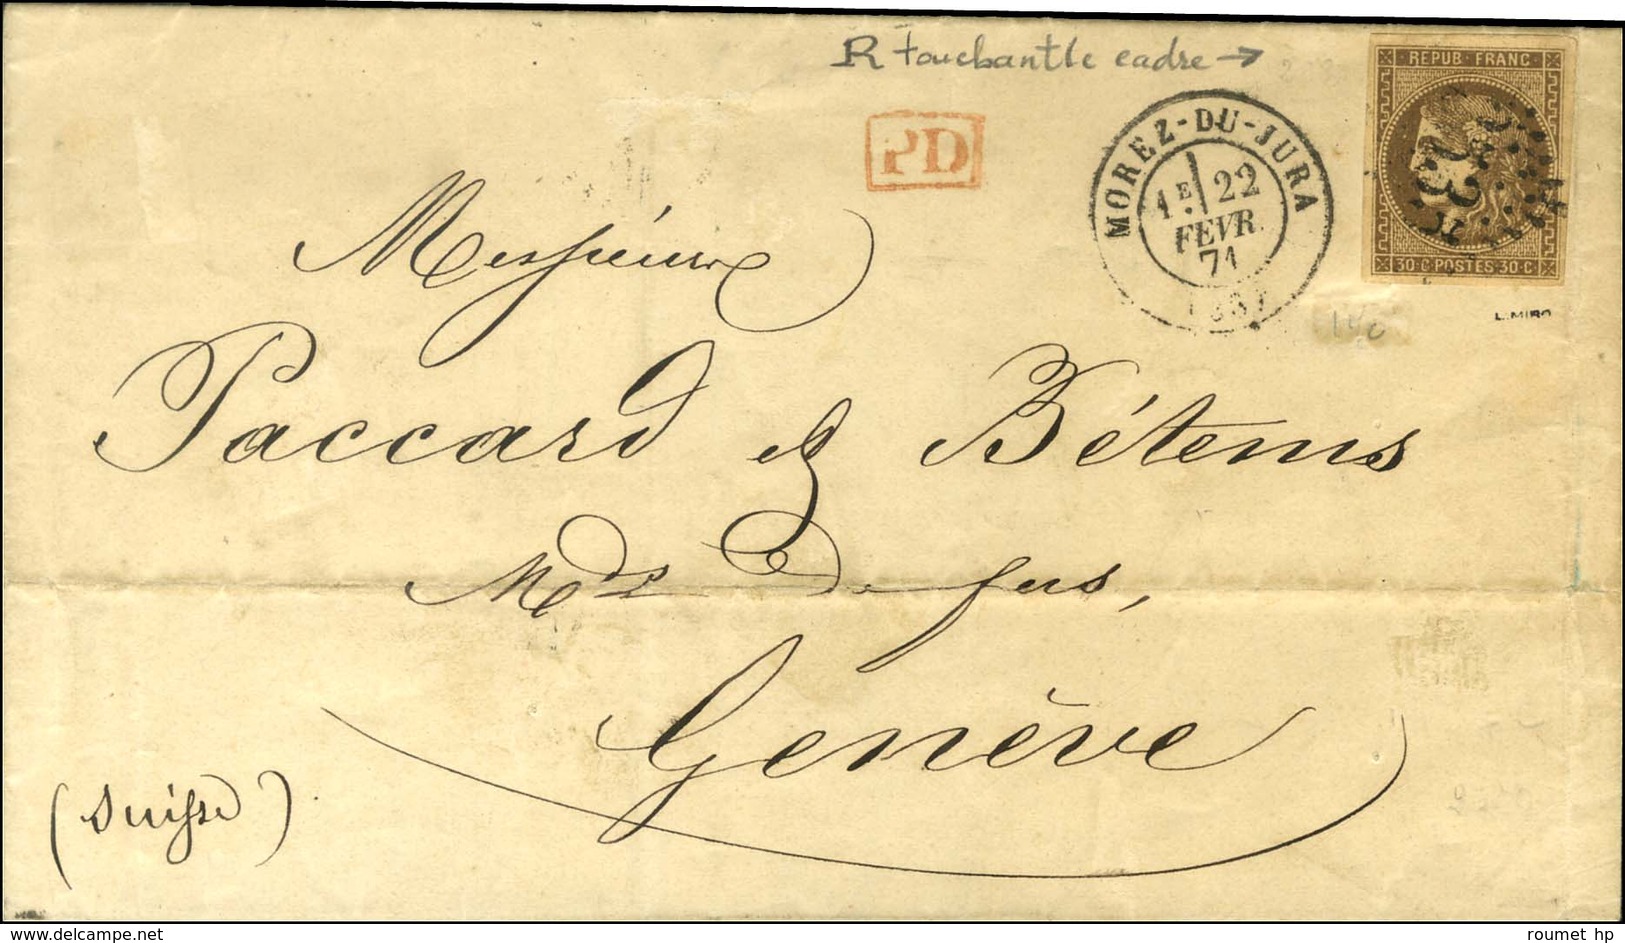 R touchant le cadre →
REPUB · FRANC
30 · C · POSTES 30 · C
PD
MOREZ-DU-JURA
1E 22
FEVR.
71
L. MIRO
Messieurs
Paccard & Bétems
Mds De fers,
Genève
(Suisse)
www.delcampe.net
roumet hp